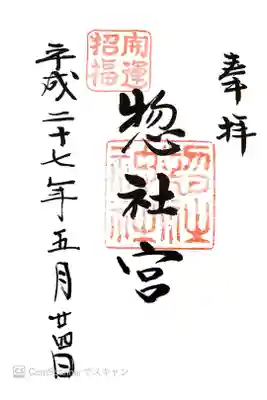 奉拝
開運
招福
惣社宮
平成二十七年五月廿四日
CamScannerでスキャン